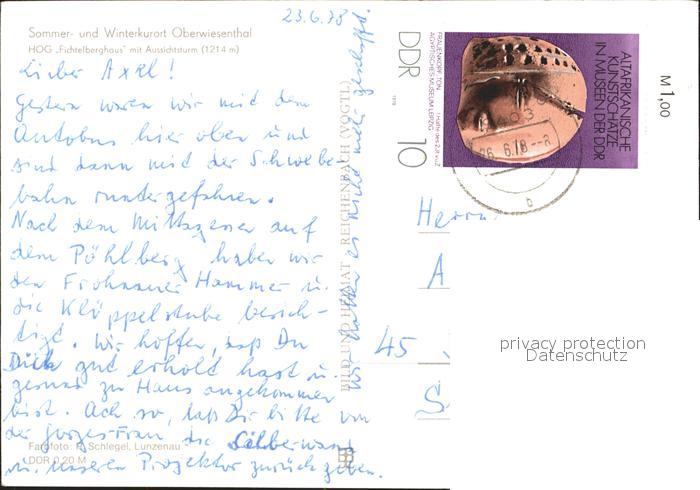 Sommer- und Winterkurort Oberwiesenthal
HOG „Fichtelberghaus" mit Aussichtsturm (1214 m)
23.6.78
Lieber Axel!
Gestern waren wir mit dem
Autobus hier oben und
sind dann mit der Schwebe-
bahn runtergefahren.
Nach dem Mittagessen auf
dem Pöhlberg haben wir
den Frohnauer Hammer u.
die Klöppelstube besich-
tigt. Wir hoffen, daß Du
Dich gut erholt hast u.
gesund zu Haus angekommen
bist. Ach so, laß Dir bitte von
der Frau die
u. unseren Projektor zurückgeben.
Wir hatten es nicht mehr geschafft.
Farbfoto: Schlegel, Lunzenau
DDR 0,20 M
BILD UND HEIMAT REICHENBACH (VOGTL)
M 1,00
ALTAFRIKANISCHE
KUNSTSCHÄTZE
IN MUSEEN DER DDR
FRAUENKOPF, TON
ÄGYPTISCHES MUSEUM LEIPZIG
DDR
10
1978
26.6.78
b
Herrn
A
45
S
privacy protection
Datenschutz